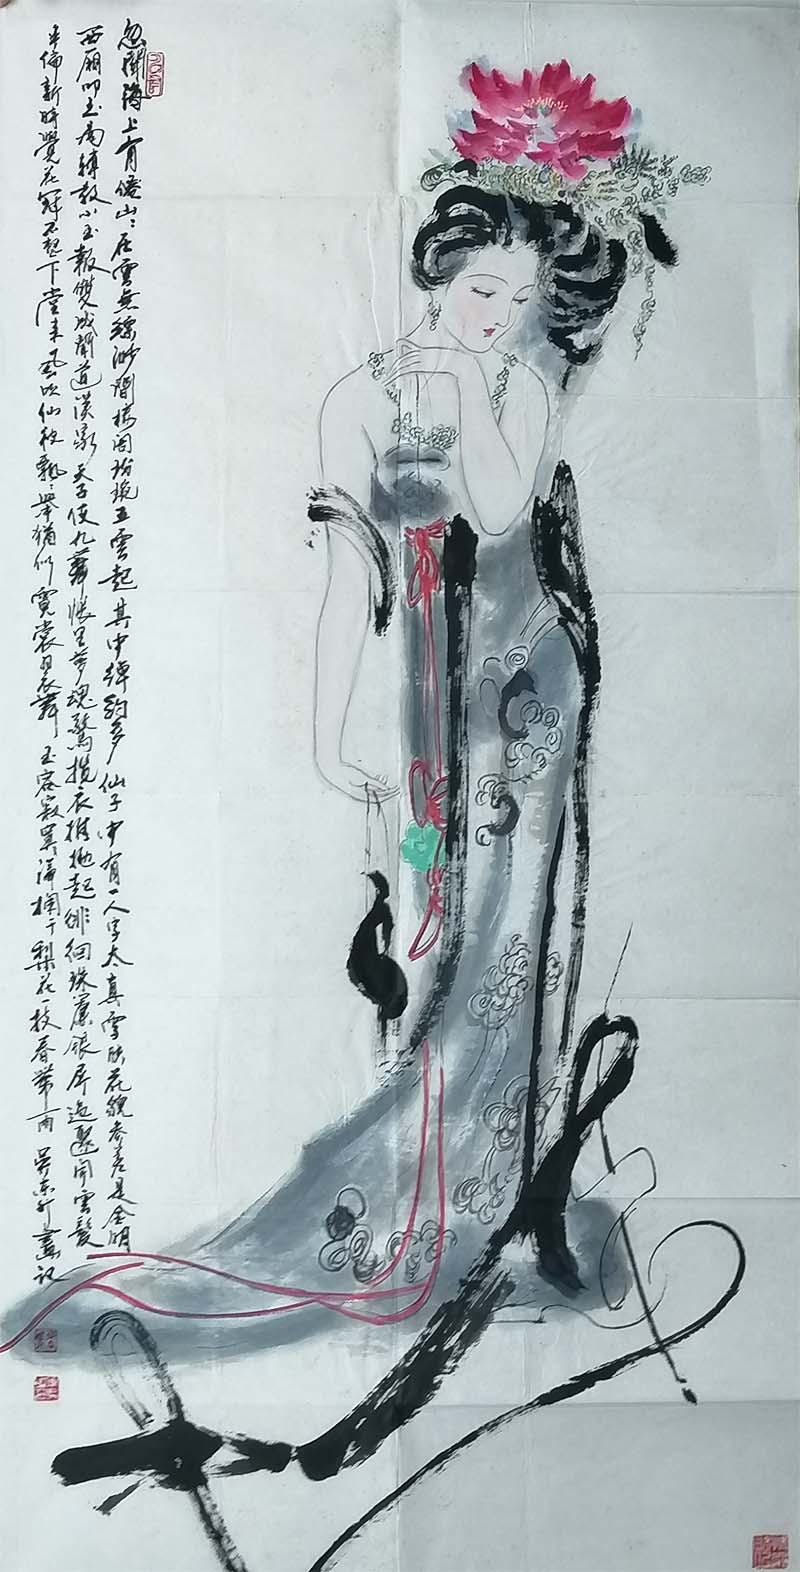 忽聞海上有僊山〻在雲無缥渺間樓阁玲珑五雲起其中綽約多仙子中有一人字太真雪肤花貌参差是金阙
西厢叩玉扃轉教小玉報雙成聞道漢家天子使九華帳里夢魂驚攬衣推枕起徘徊珠簾銀屏迤邐開雲髮
半偏新睡覺花冠不整下堂来風吹仙袂飄〻舉猶似霓裳羽衣舞玉容寂寞淚闌干梨花一枝春带雨 畫記